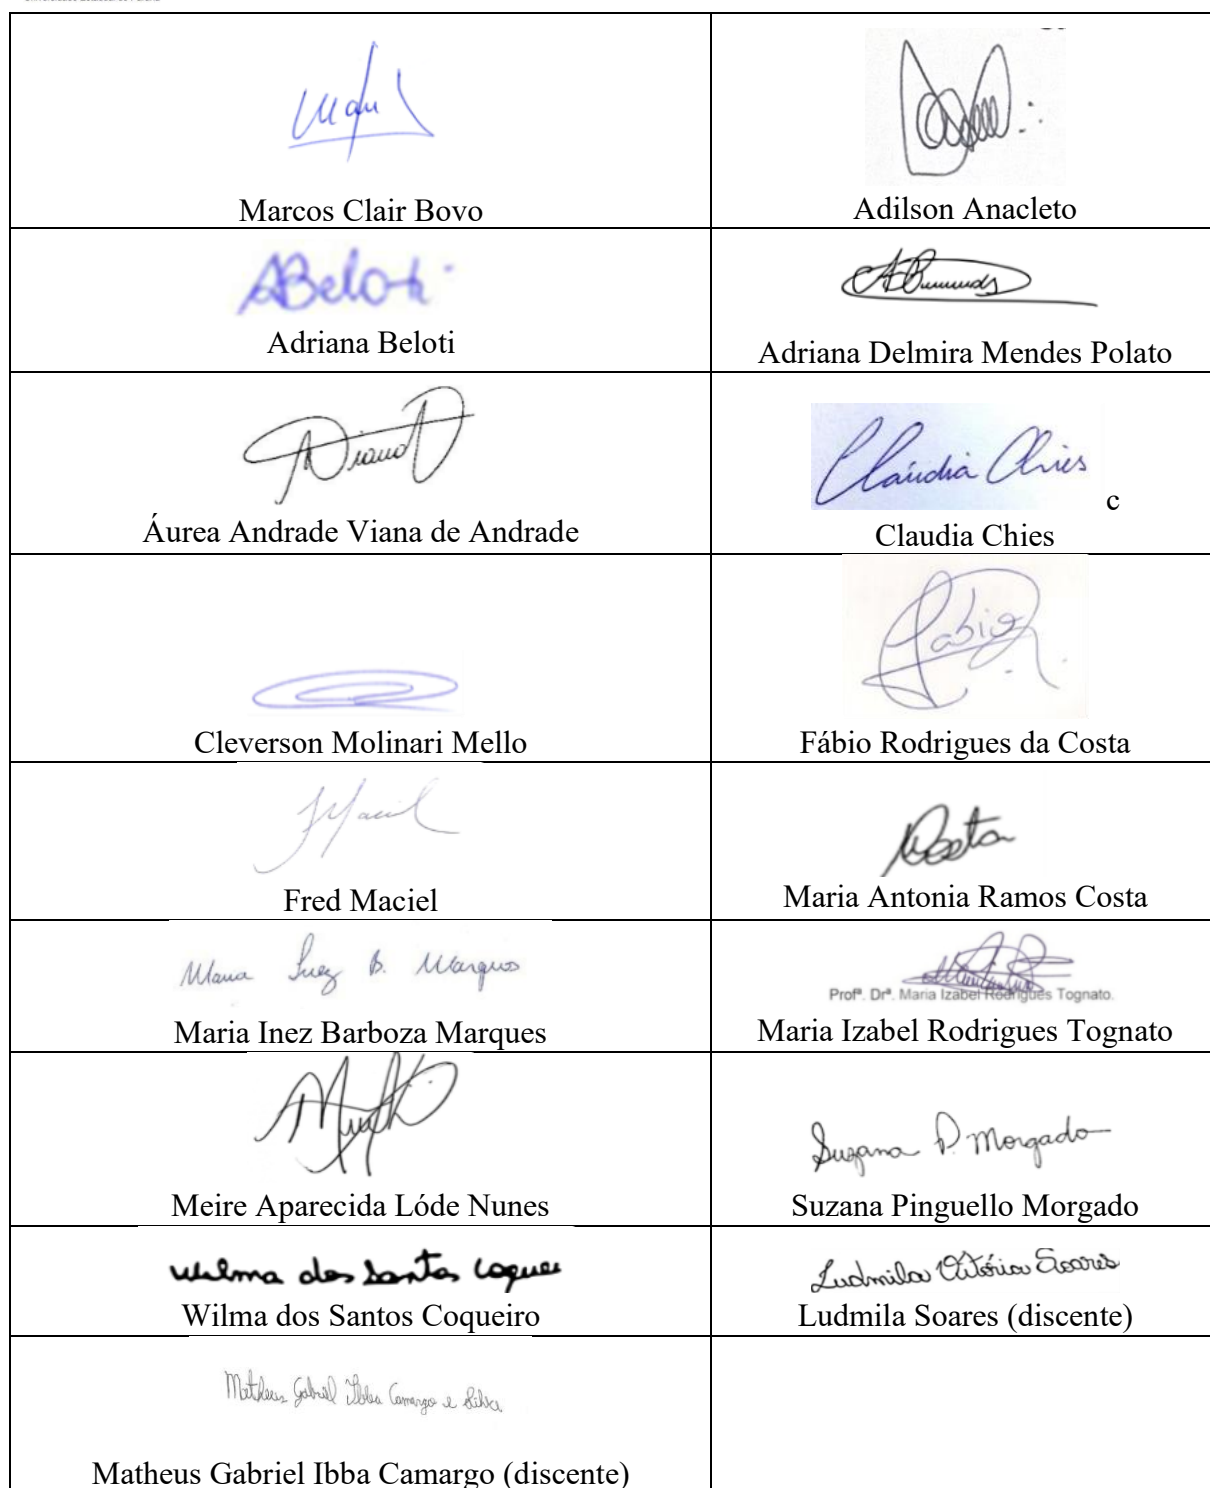 Marcos Clair Bovo
Adilson Anacleto
ABeloti
Adriana Beloti
Adriana Delmira Mendes Polato
Áurea Andrade Viana de Andrade
Claúdia Chies
c
Claudia Chies
Cleverson Molinari Mello
Fabio
Fábio Rodrigues da Costa
Maciel
Fred Maciel
Costa
Maria Antonia Ramos Costa
Maria Inez B. Marques
Maria Inez Barboza Marques
Profª. Drª. Maria Izabel Rodrigues Tognato.
Maria Izabel Rodrigues Tognato
Meire Aparecida Lóde Nunes
Suzana P. Morgado
Suzana Pinguello Morgado
Wilma dos Santos Coquei
Wilma dos Santos Coqueiro
Ludmila Vitória Soares
Ludmila Soares (discente)
Matheus Gabriel Ibba Camargo e Silva
Matheus Gabriel Ibba Camargo (discente)